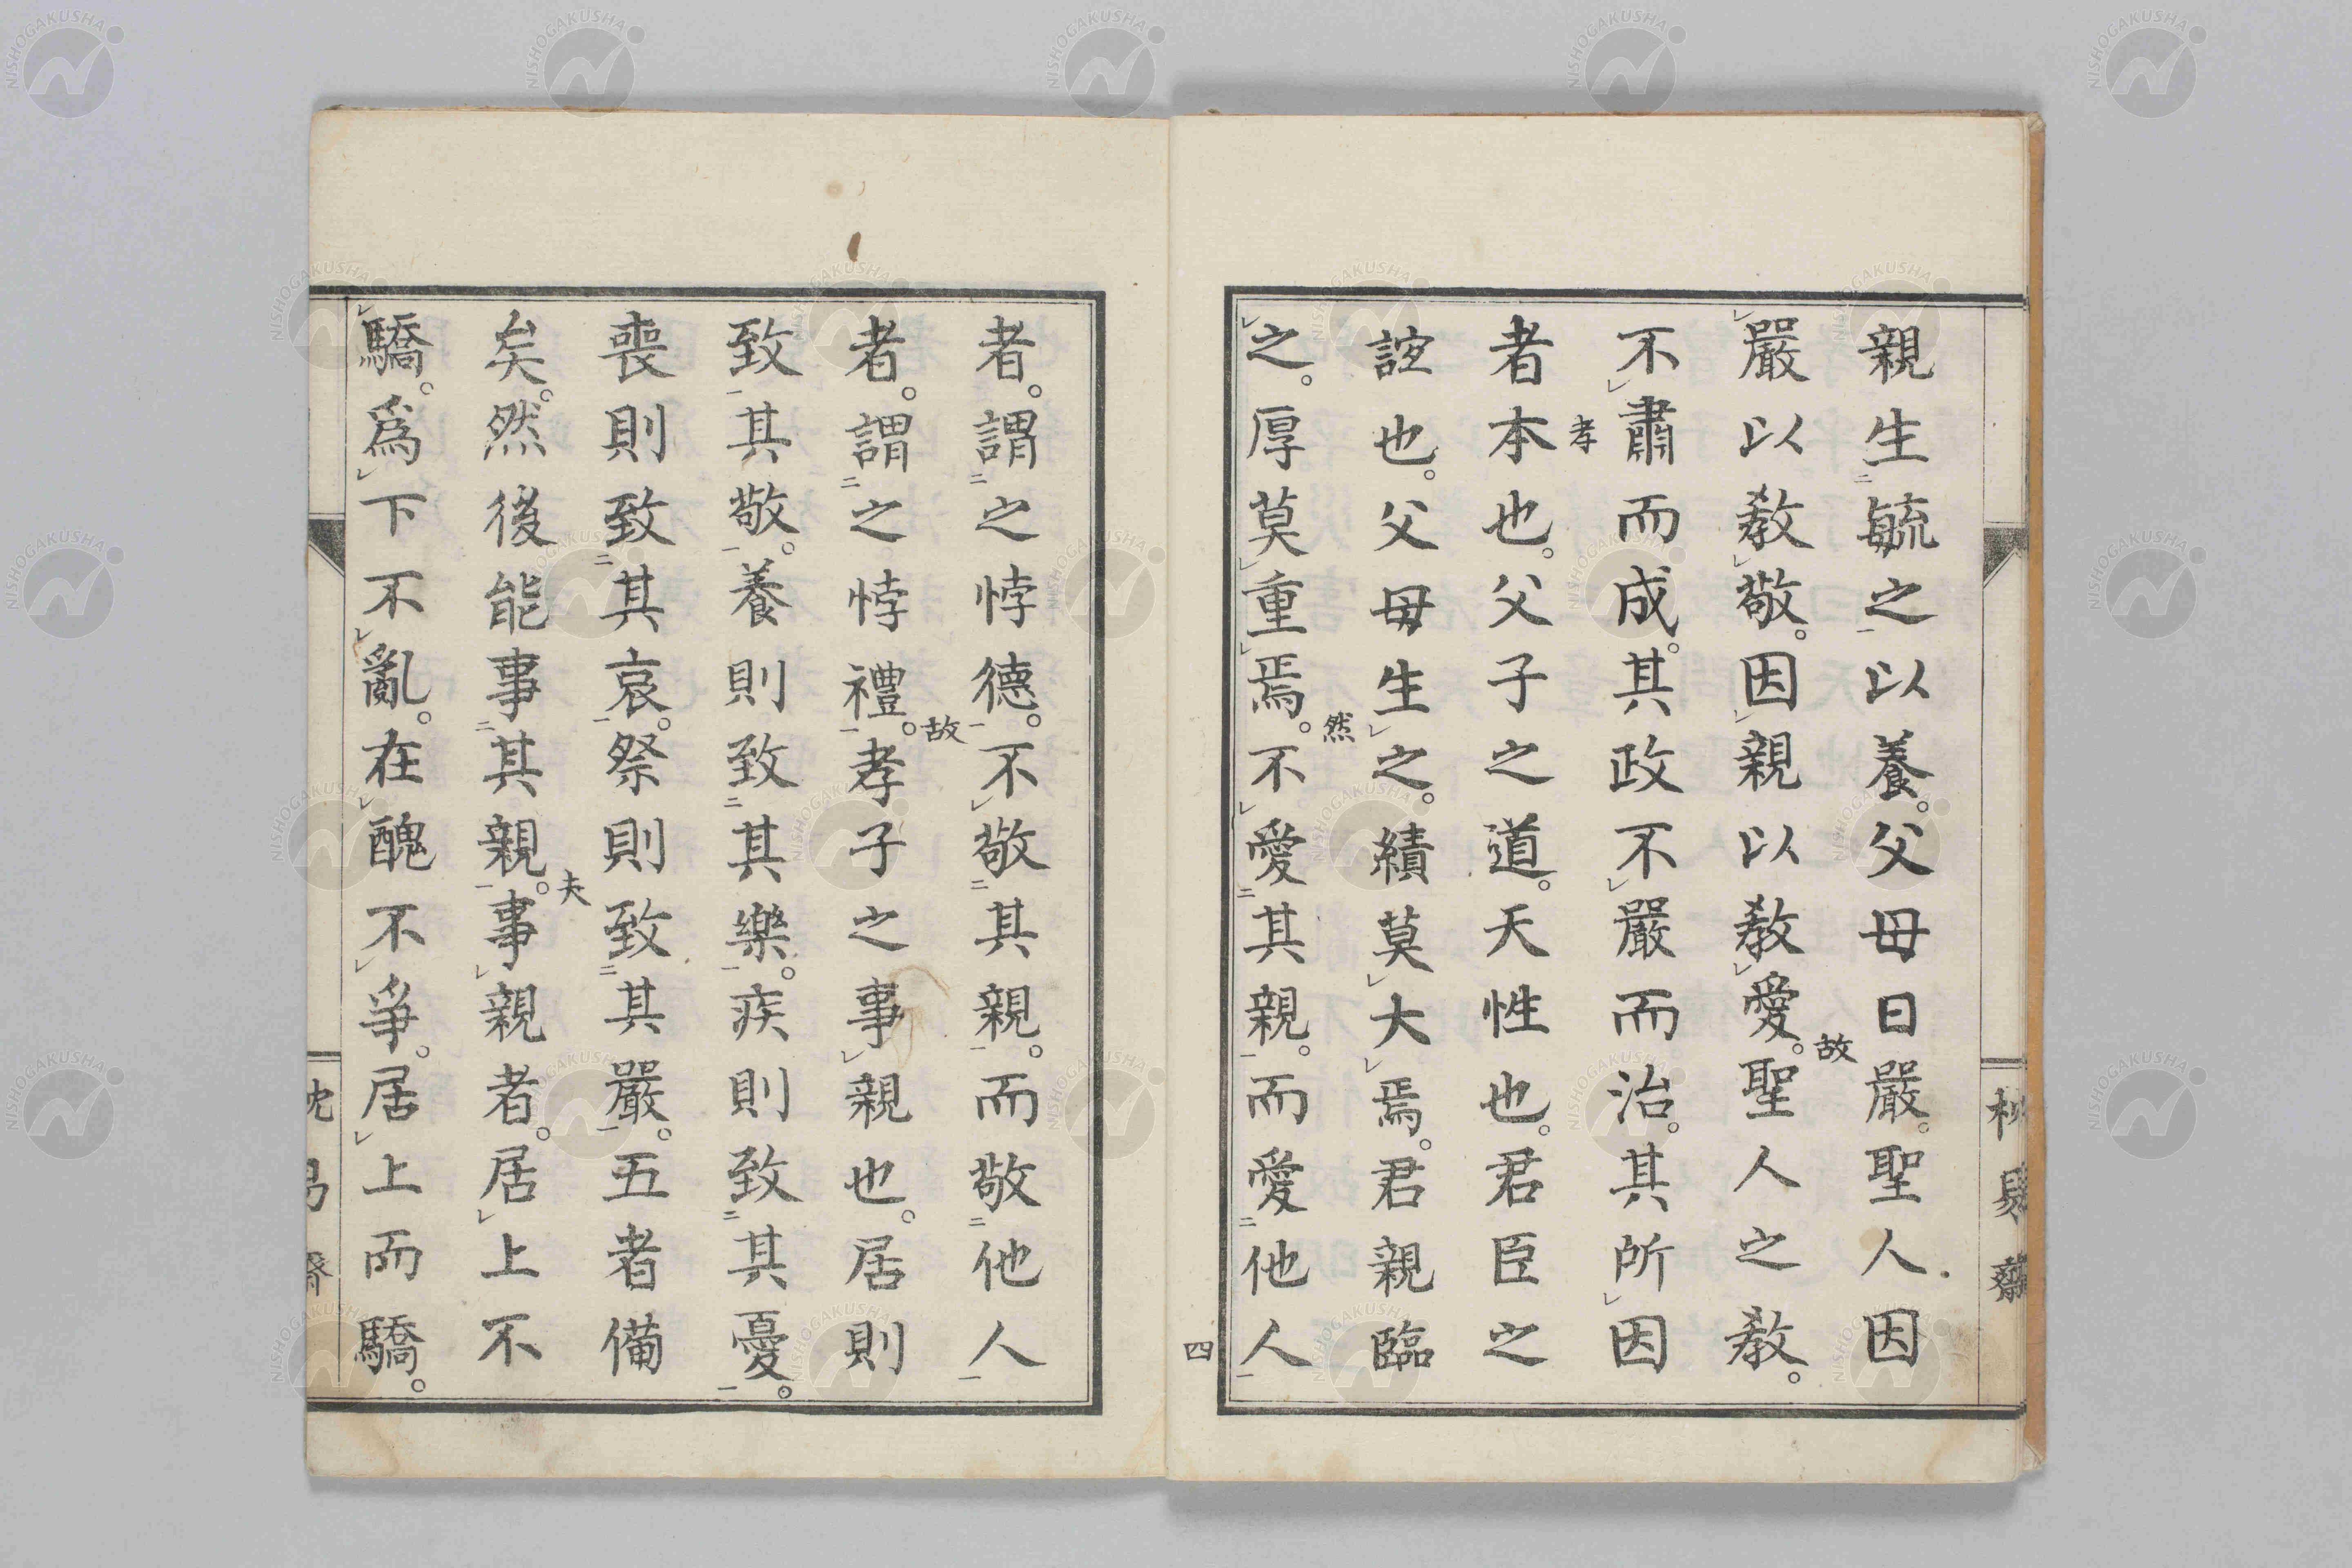 親生毓之以養。父母日嚴。聖人因
故
嚴以教敬。因親以教愛。聖人之教。
不肅而成。其政不嚴而治。其所因
孝
者本也。父子之道。天性也。君臣之
誼也。父母生之。績莫大焉。君親臨
然
之。厚莫重焉。不愛其親。而愛他人
四
者。謂之悖德。不敬其親。而敬他人
故
者。謂之悖禮。孝子之事親也。居則
致其敬。養則致其樂。疾則致其憂。
喪則致其哀。祭則致其嚴。五者備
夫
矣。然後能事其親。事親者。居上不
驕。爲下不亂。在醜不爭。居上而驕。
NISHOGAKUSHA